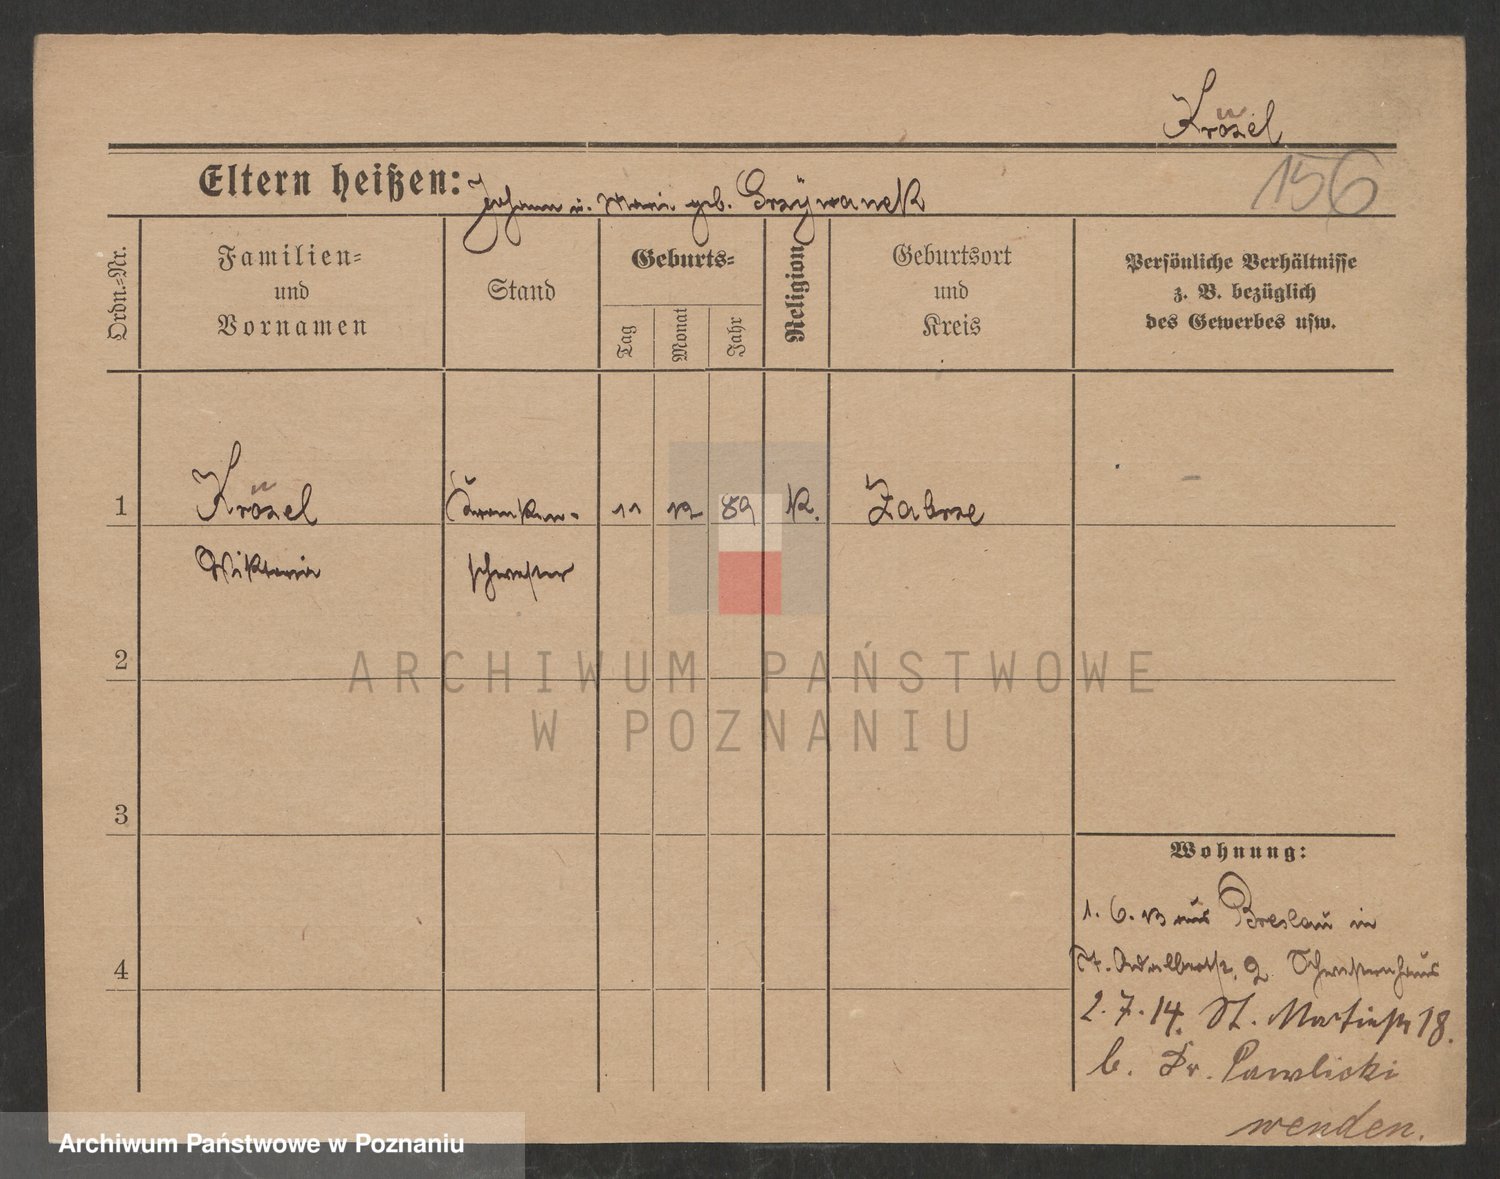 Krösel
156
Eltern heißen: Johann u. Marie geb. Grzÿwanek
Ordn.-Nr.
Familien-
und
Vornamen
Stand
Geburts-
Tag
Monat
Jahr
Religion
Geburtsort
und
Kreis
Persönliche Verhältnisse
z. B. bezüglich
des Gewerbes usw.
1 Krösel Kranken- 11 12 89 K. Zabrze
Viktoria schwester
2
ARCHIWUM PAŃSTWOWE
W POZNANIU
3
Wohnung:
1. 6. 13 aus Breslau in
St. Adalbertstr. 2 Schwesternhaus
4
2. 7. 14. St. Martinstr 18.
b. Dr. Pawlicki
wenden.
Archiwum Państwowe w Poznaniu